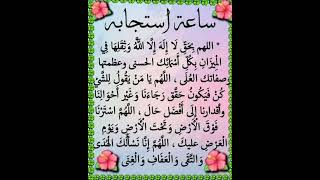 ساعة إستجابة
* اللهم بِحَقِّ لَا إِلَهَ إِلَّا اللَّهُ وَثِقَلِهَا فِي
الْمِيزَانِ بِكُلِّ أَسْمَائِكَ الحسنى وعظمتها
وصفاتك العُلَى ، اللَّهُمَّ يَا مَنْ يَقُولُ لِلشَّيْءِ
كُنْ فَيَكُونُ حَقِّق رَجَاءَنَا وَغَيِّر أَحْوَالَنَا
وأقدارنا إلى أَفْضَلِ حَالٍ ، اللَّهُمَّ اسْتُرْنَا
فَوْقَ الْأَرْضِ وَتَحْتَ الْأَرْضِ وَيَوْمِ
الْعَرْضِ عليك ، اللَّهُمَّ إِنَّا نَسْأَلُكَ الْهُدَى
وَالتُّقَى وَالْعَفَافَ وَالْغِنَى